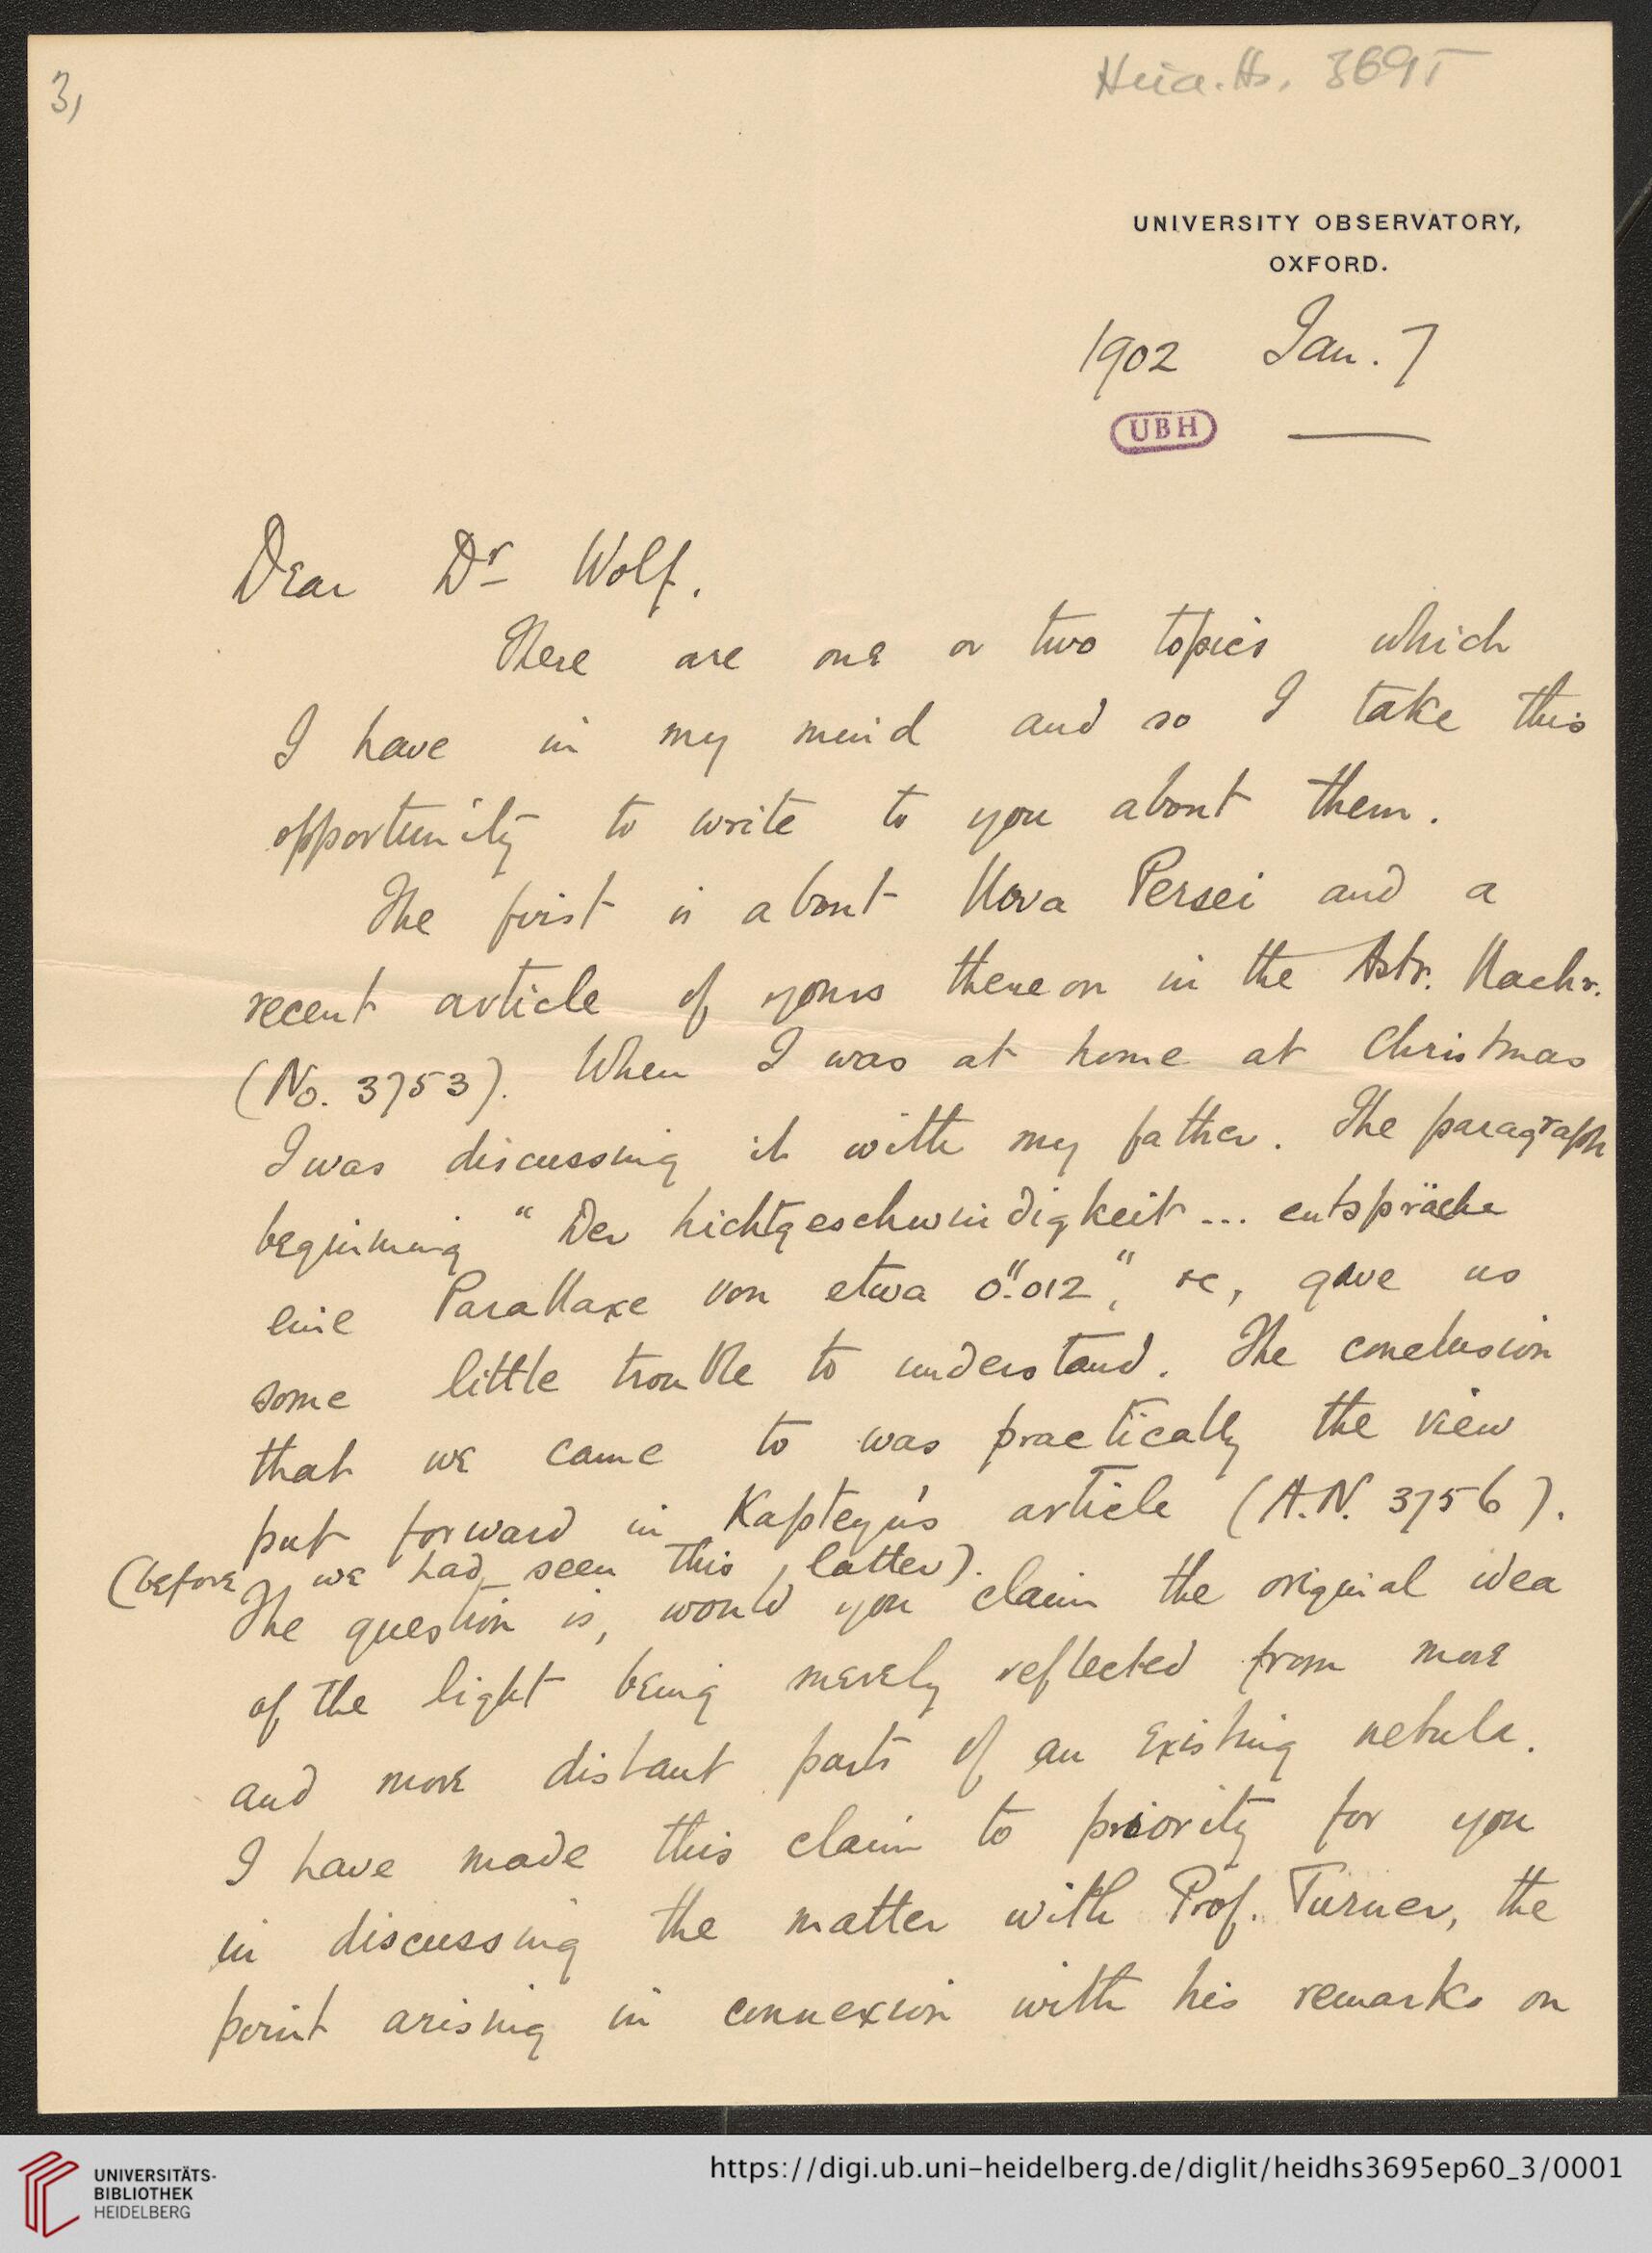 3,
Heid. Hs. 3695
UNIVERSITY OBSERVATORY,
OXFORD.
1902 Jan. 7
UBH
Dear Dr Wolf.
There are one or two topics which
I have in my mind and so I take this
opportunity to write to you about them.
The first is about Nova Persei and a
recent article of yours thereon in the Astr. Nachr.
(No. 3753). When I was at home at Christmas
I was discussing it with my father. The paragraph
beginning "Der Lichtgeschwindigkeit ... entspräche
eine Parallaxe von etwa 0".012", &c, gave us
some little trouble to understand. The conclusion
that we came to was practically the view
put forward in Kapteyn's article (A.N. 3756).
(before we had seen this latter).
The question is, would you claim the original idea
of the light being merely reflected from more
and more distant parts of an existing nebula.
I have made this claim to priority for you
in discussing the matter with Prof. Turner, the
point arising in connexion with his remarks on
UNIVERSITÄTS-
BIBLIOTHEK
HEIDELBERG
https://digi.ub.uni-heidelberg.de/diglit/heidhs3695ep60_3/0001